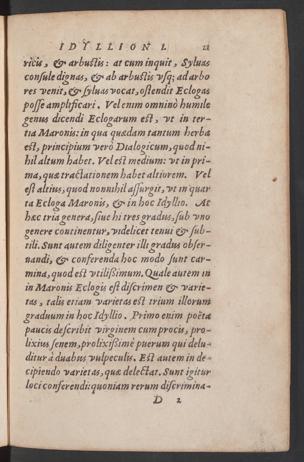 IDYLLION I. 21
ricis, & arbustis: at cum inquit, Syluas
consule dignas, & ab arbustis vsq; ad arbo
res venit, & syluas vocat, ostendit Eclogas
posse amplificari. Vel enim omninò humile
genus dicendi Eclogarum est, vt in ter-
tia Maronis: in qua quædam tantum herba
est, principium verò Dialogicum, quod ni-
hil altum habet. Vel est medium: vt in pri-
ma, quæ tractationem habet altiorem. Vel
est altius, quod nonnihil assurgit, vt in quar
ta Ecloga Maronis, & in hoc Idyllio. At
hæc tria genera, siue hi tres gradus, sub vno
genere continentur, videlicet tenui & sub-
tili. Sunt autem diligenter illi gradus obser-
uandi, & conferenda hoc modo sunt car-
mina, quod est vtilißimum. Quale autem in
in Maronis Eclogis est discrimen & varie-
tas, talis etiam varietas est trium illorum
graduum in hoc Idyllio. Primo enim poëta
paucis describit virginem cum procis, pro-
lixius senem, prolixißimè puerum qui delu-
ditur à duabus vulpeculis. Est autem in de-
cipiendo varietas, quæ delectat. Sunt igitur
loci conferendi: quoniam rerum discrimina-
D 2